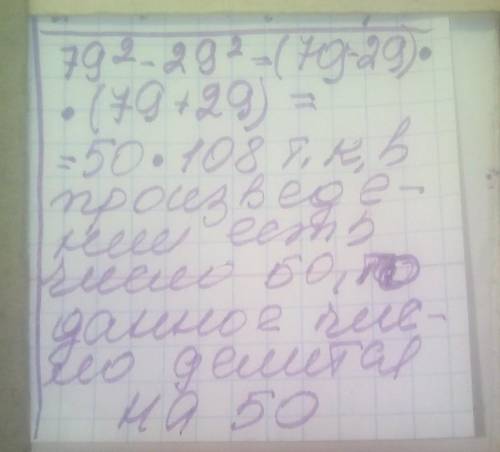 79² - 29² = (79-29)·
·(79+29) =
=50·108 т.к, в
произведе-
нии есть
число 50, то
данное чис-
ло делится
на 50